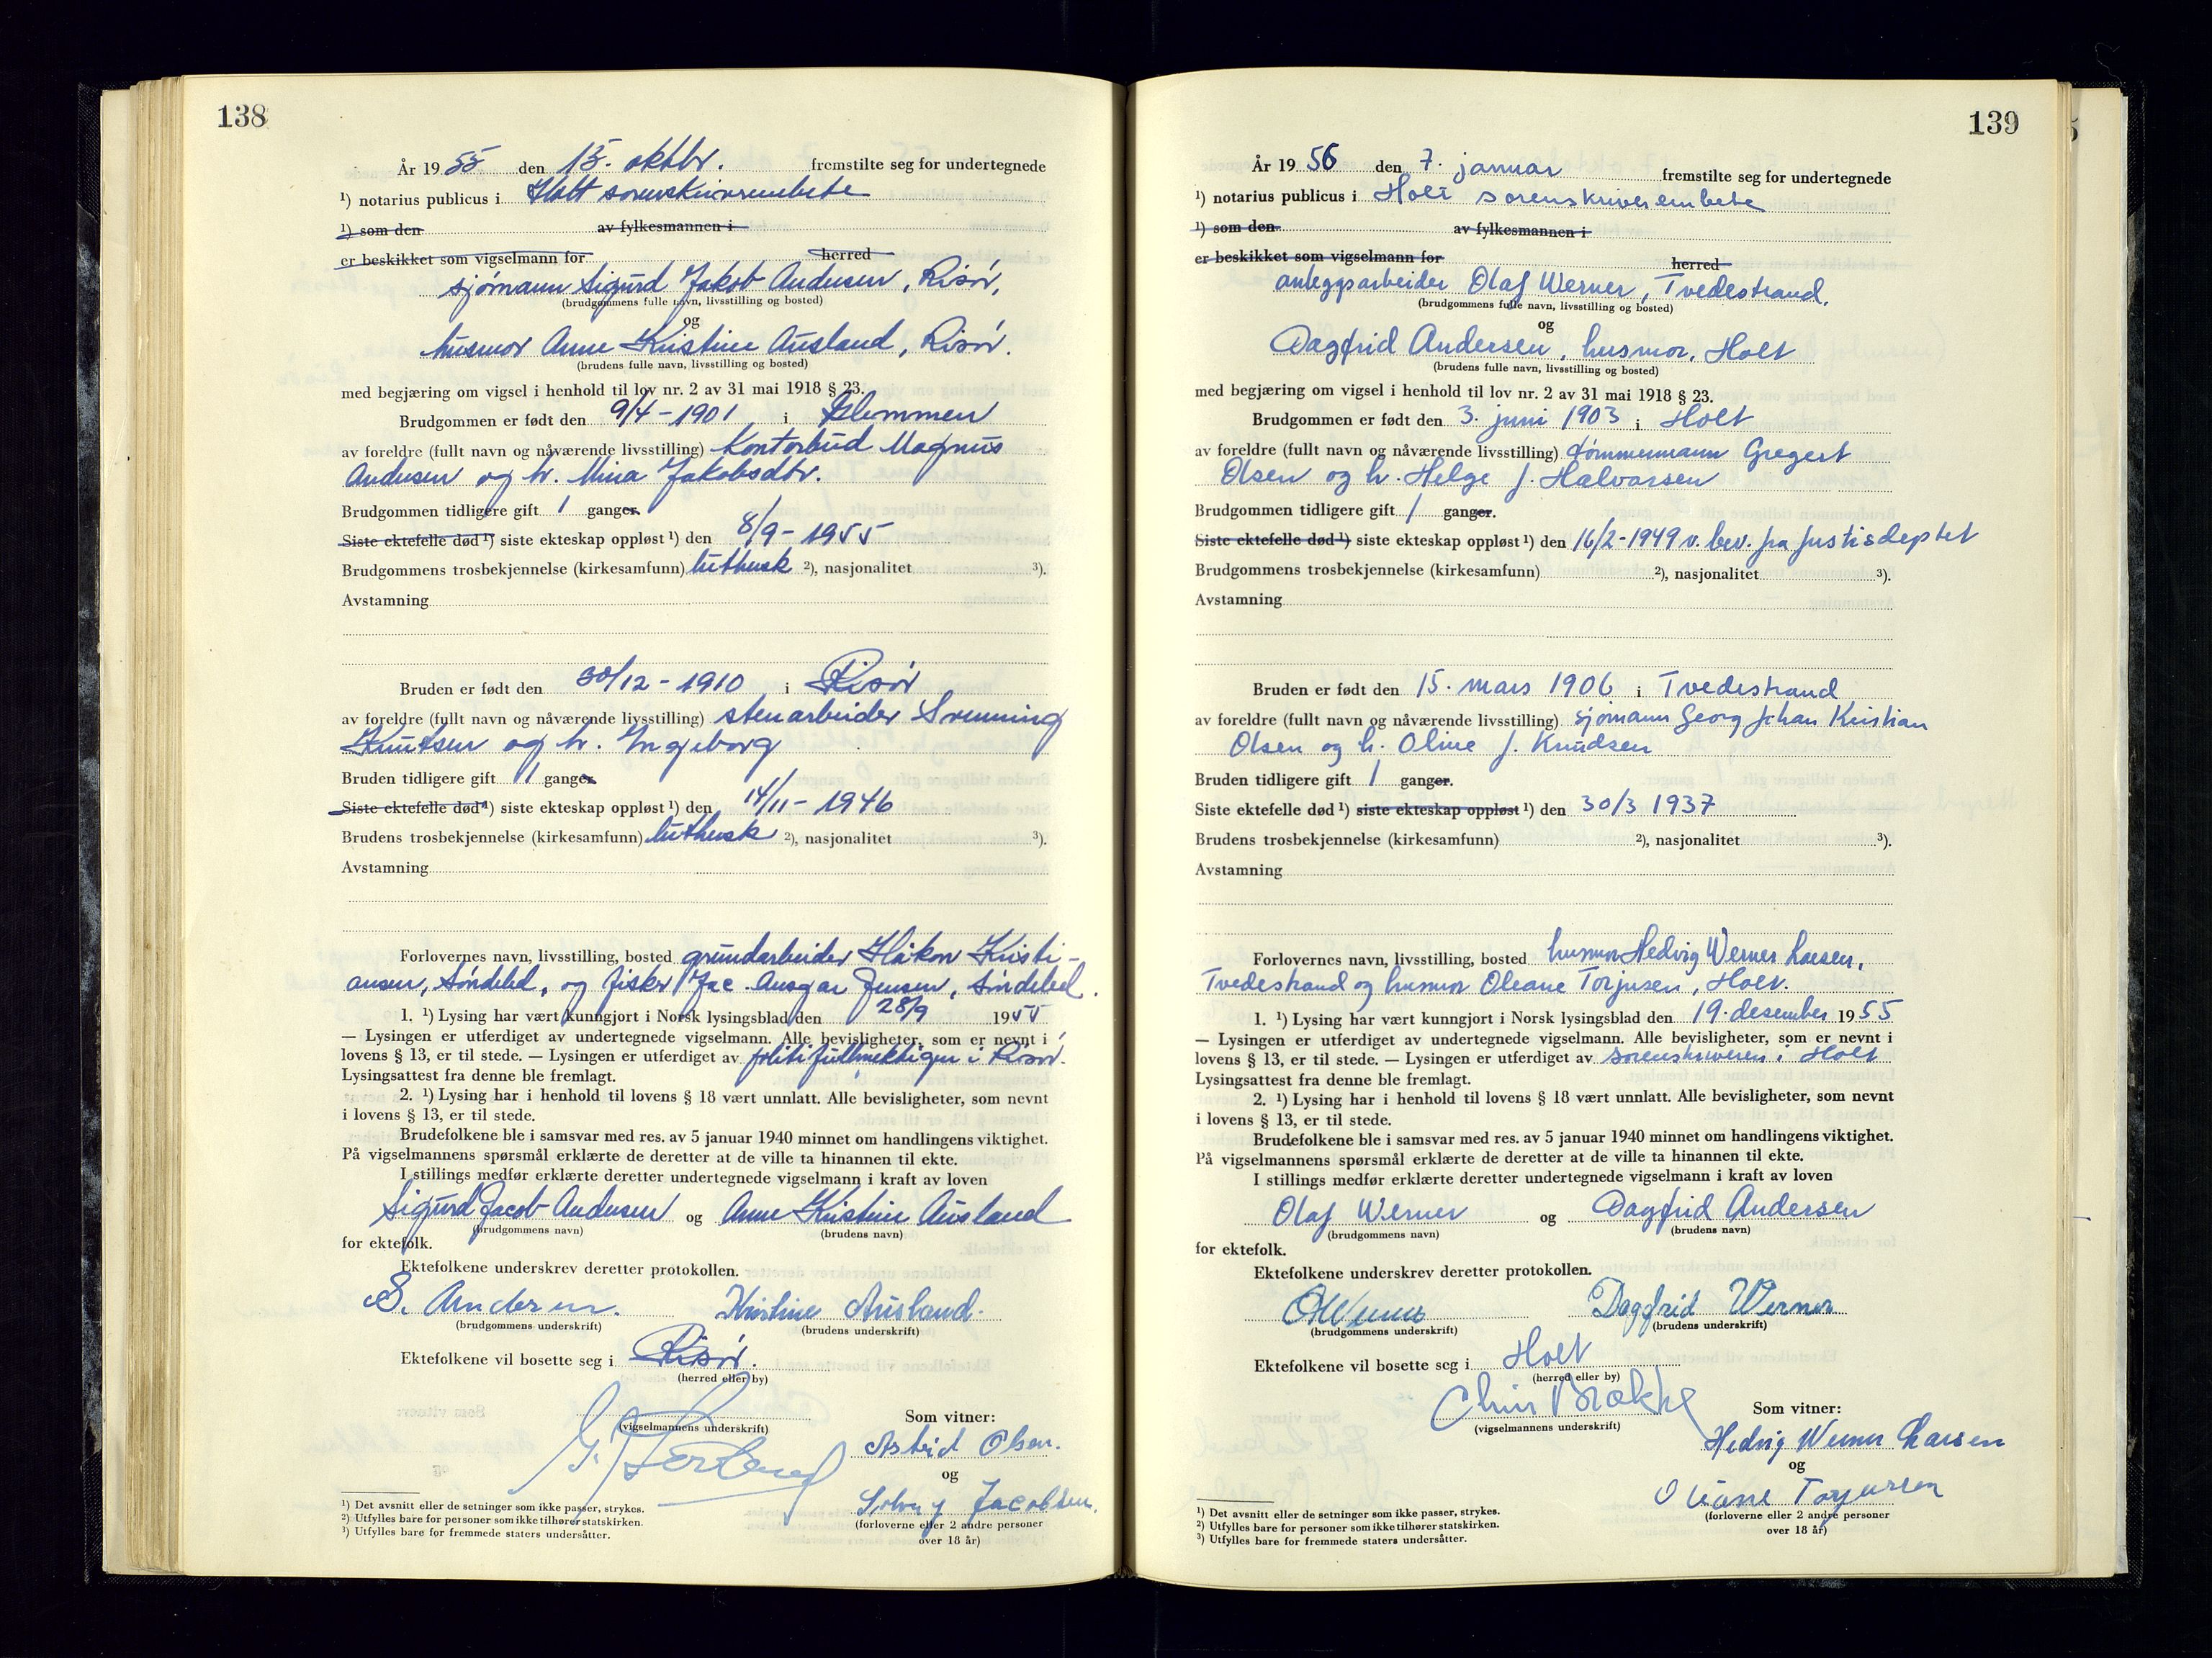 138
År 1955 den 15. oktbr. fremstilte seg for undertegnede
¹) notarius publicus i Holt sorenskriverembete
¹) som den av fylkesmannen i
er beskikket som vigselmann for herred
sjømann Sigurd Jakob Andersen, Risør,
(brudgommens fulle navn, livsstilling og bosted)
og
husmor Anne Kristine Ausland, Risør.
(brudens fulle navn, livsstilling og bosted)
med begjæring om vigsel i henhold til lov nr. 2 av 31 mai 1918 § 23.
Brudgommen er født den 9/4 - 1901 i Glemmen
av foreldre (fullt navn og nåværende livsstilling) Kontorbud Magnus
Andersen og h. Mina Jakobsdtr.
Brudgommen tidligere gift 1 ganger.
Siste ektefelle død ¹) siste ekteskap oppløst ¹) den 8/9 - 1955
Brudgommens trosbekjennelse (kirkesamfunn) luthersk ²), nasjonalitet ³).
Avstamning
Bruden er født den 30/12 - 1910 i Risør
av foreldre (fullt navn og nåværende livsstilling) stenarbeider Svenning
Knutsen og h. Ingeborg
Bruden tidligere gift 1 ganger.
Siste ektefelle død ¹) siste ekteskap oppløst ¹) den 14/11 - 1946
Brudens trosbekjennelse (kirkesamfunn) luthersk ²), nasjonalitet ³).
Avstamning
Forlovernes navn, livsstilling, bosted grundarbeider Håkon Kristi-
ansen, Søndeled, og fisker Jac. Ansgar Jensen, Søndeled.
1. ¹) Lysing har vært kunngjort i Norsk lysingsblad den 28/9 1955
— Lysingen er utferdiget av undertegnede vigselmann. Alle bevisligheter, som er nevnt i
lovens § 13, er til stede. — Lysingen er utferdiget av politifullmektigen i Risør.
Lysingsattest fra denne ble fremlagt.
2. ¹) Lysing har i henhold til lovens § 18 vært unnlatt. Alle bevisligheter, som nevnt
i lovens § 13, er til stede.
Brudefolkene ble i samsvar med res. av 5 januar 1940 minnet om handlingens viktighet.
På vigselmannens spørsmål erklærte de deretter at de ville ta hinannen til ekte.
I stillings medfør erklærte deretter undertegnede vigselmann i kraft av loven
Sigurd Jacob Andersen og Anne Kristine Ausland
(brudgommens navn) (brudens navn)
for ektefolk.
Ektefolkene underskrev deretter protokollen.
S. Andersen. Kristine Ausland.
(brudgommens underskrift) (brudens underskrift)
Ektefolkene vil bosette seg i Risør.
(herred eller by)
(vigselmannens underskrift)
Som vitner:
Astrid Olsen.
og
Solveig Jacobsen.
(forloverne eller 2 andre personer
over 18 år)
¹) Det avsnitt eller de setninger som ikke passer, strykes.
²) Utfylles bare for personer som ikke tilhører statskirken.
³) Utfylles bare for fremmede staters undersåtter.
139
År 1956 den 7. januar fremstilte seg for undertegnede
¹) notarius publicus i Holt sorenskriverembete
¹) som den av fylkesmannen i
er beskikket som vigselmann for herred
anleggsarbeider Olaf Werner, Tvedestrand.
(brudgommens fulle navn, livsstilling og bosted)
og
Dagfrid Andersen, husmor, Holt
(brudens fulle navn, livsstilling og bosted)
med begjæring om vigsel i henhold til lov nr. 2 av 31 mai 1918 § 23.
Brudgommen er født den 3. juni 1903 i Holt
av foreldre (fullt navn og nåværende livsstilling) tømmermann Gregert
Olsen og h. Helge f. Halvorsen
Brudgommen tidligere gift 1 ganger.
Siste ektefelle død ¹) siste ekteskap oppløst ¹) den 16/2 - 1949 v. bev. fra Justisdeptet
Brudgommens trosbekjennelse (kirkesamfunn) ²), nasjonalitet ³).
Avstamning
Bruden er født den 15. mars 1906 i Tvedestrand
av foreldre (fullt navn og nåværende livsstilling) sjømann Georg Johan Kristian
Olsen og h. Oline f. Knudsen
Bruden tidligere gift 1 ganger.
Siste ektefelle død ¹) siste ekteskap oppløst ¹) den 30/3 1937
Brudens trosbekjennelse (kirkesamfunn) ²), nasjonalitet ³).
Avstamning
Forlovernes navn, livsstilling, bosted husmor Hedvig Werner Larsen,
Tvedestrand og husmor Oleane Torjusen, Holt.
1. ¹) Lysing har vært kunngjort i Norsk lysingsblad den 19. desember 1955
— Lysingen er utferdiget av undertegnede vigselmann. Alle bevisligheter, som er nevnt i
lovens § 13, er til stede. — Lysingen er utferdiget av sorenskriveren i Holt
Lysingsattest fra denne ble fremlagt.
2. ¹) Lysing har i henhold til lovens § 18 vært unnlatt. Alle bevisligheter, som nevnt
i lovens § 13, er til stede.
Brudefolkene ble i samsvar med res. av 5 januar 1940 minnet om handlingens viktighet.
På vigselmannens spørsmål erklærte de deretter at de ville ta hinannen til ekte.
I stillings medfør erklærte deretter undertegnede vigselmann i kraft av loven
Olaf Werner og Dagfrid Andersen
(brudgommens navn) (brudens navn)
for ektefolk.
Ektefolkene underskrev deretter protokollen.
O Werner Dagfrid Werner
(brudgommens underskrift) (brudens underskrift)
Ektefolkene vil bosette seg i Holt
(herred eller by)
(vigselmannens underskrift)
Som vitner:
Hedvig Werner Larsen
og
Oleane Torjusen
(forloverne eller 2 andre personer
over 18 år)
¹) Det avsnitt eller de setninger som ikke passer, strykes.
²) Utfylles bare for personer som ikke tilhører statskirken.
³) Utfylles bare for fremmede staters undersåtter.